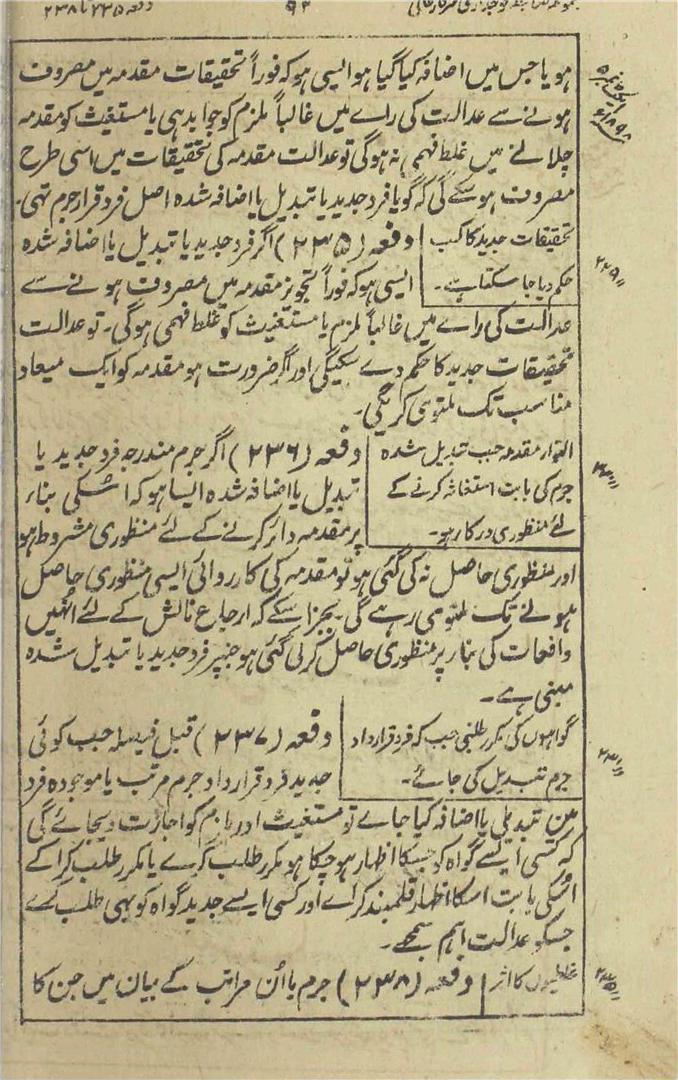 دفعہ ۲۳۵ تا ۲۳۸
۹۲
ہو یا جس میں اضافہ کیا گیا ہو ایسی ہو کہ فوراً تحقیقات مقدمہ میں مصروف
ہونے سے عدالت کی راے میں غالباً ملزم کو جوابدہی یا مستغیث کو مقدمہ
چلانے میں غلط فہمی نہ ہوگی تو عدالت مقدمہ کی تحقیقات میں اسی طرح
مصروف ہو سکے گی کہ گویا فرد جدید یا تبدیل یا اضافہ شدہ اصل فرد قرارجرم تہی۔
تحقیقات جدید کا کب
حکم دیا جا سکتا ہے۔
دفعہ (۲۳۵) اگر فرد جدید یا تبدیل یا اضافہ شدہ
ایسی ہو کہ فوراً تجویز مقدمہ میں مصروف ہونے سے
عدالت کی راے میں غالباً ملزم یا مستغیث کو غلط فہمی ہوگی۔ تو عدالت
تحقیقات جدید کا حکم دے سکیگی اور اگر ضرورت ہو مقدمہ کو ایک میعاد
مناسب تک ملتوی کریگی۔
التوار مقدمہ جب تبدیل شدہ
جرم کی بابت استغاثہ کرنے کے
لئے منظوری درکار ہو۔
دفعہ (۲۳۶) اگر جرم مندرجہ فرد جدید یا
تبدیل یا اضافہ شدہ ایسا ہو کہ اسکی بناء
پر مقدمہ دائر کرنے کے لئے منظوری مشروط ہو
اور منظوری حاصل نہ کی گئی ہو تو مقدمہ کی کارروائی ایسی منظوری حاصل
ہونے تک ملتوی رہے گی بجز اسکے کہ ارجاع نالش کے لئے اُنہیں
واقعات کی بنار پر منظوری حاصل کرلی گئی ہو جنپر فرد جدید یا تبدیل شدہ
مبنی ہے۔
گواہوں کی مکرر طلبی جب کہ فرد قرارداد
جرم تبدیل کی جائے۔
دفعہ (۲۳۷) قبل فیصلہ جب کوئی
جدید فرد قرارداد جرم مرتب یا موجودہ فرد
میں تبدیلی یا اضافہ کیا جاے تو مستغیث اور ملزم کو اجازت دیجائے گی
کہ کسی ایسے گواہ کو جسکا اظہار ہو چکا ہو مکرر طلب کرے یا مکرر طلب کرا کے
اسکی بابت اسکا اظہار قلمبند کراے اور کسی ایسے جدید گواہ کو بہی طلب کرے
جسکو عدالت اہم سمجھے۔
غلطیوں کا اثر
دفعہ (۲۳۸) جرم یا اُن مراتب کے بیان میں جن کا
۲۲۹
۲۳۰
۲۳۱